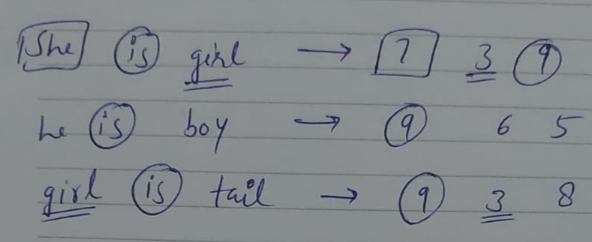 She is girl → 7 3 9
he is boy → 9 6 5
girl is tail → 9 3 8